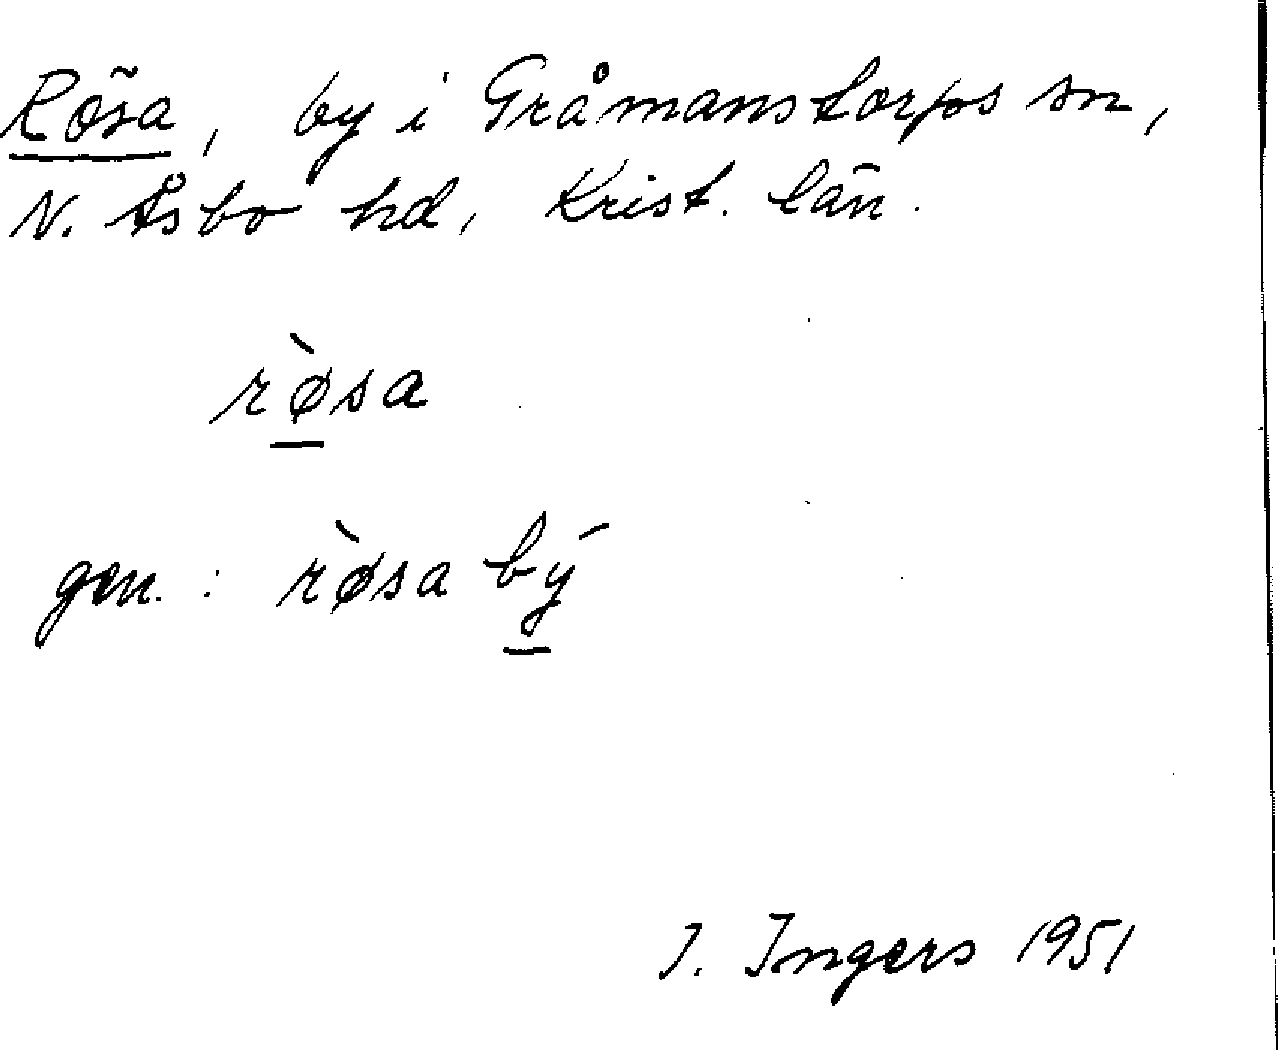 Rösa, by i Gråmanstorps sn,
N. Åsbo hd, Krist. län.
rø̀sa
gen. : rø̀sa bý
I. Ingers 1951